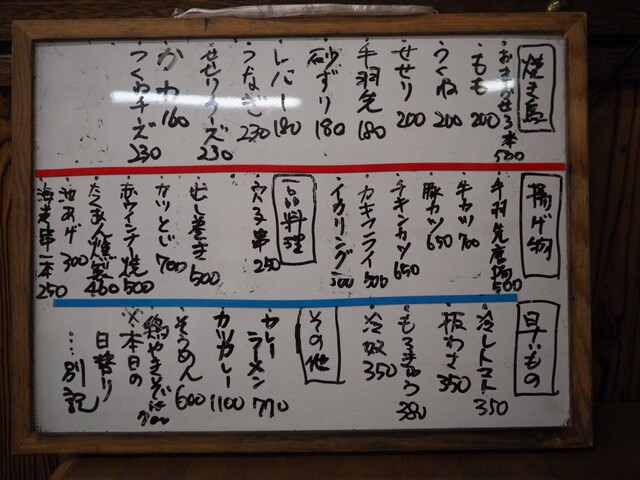 焼き鳥
おまかせ3本500
もも200
つくね200
せせり200
手羽先180
砂ずり180
レバー180
うなぎ230
せせりチーズ230
かわ160
つくねチーズ230
揚げ物
手羽先唐揚500
牛カツ700
豚カツ650
チキンカツ650
カキフライ500
イカリング500
一品料理
穴子串250
だし巻き500
700
赤ウインナー焼500
たくあん燻製400
池あげ300
海老串一本250
早いもの
冷しトマト350
板わさ350
もろきゅう380
冷奴350
その他
カレーラーメン770
カツカレー1100
そうめん600
鶏やきそば
※本日の
日替り
……別記